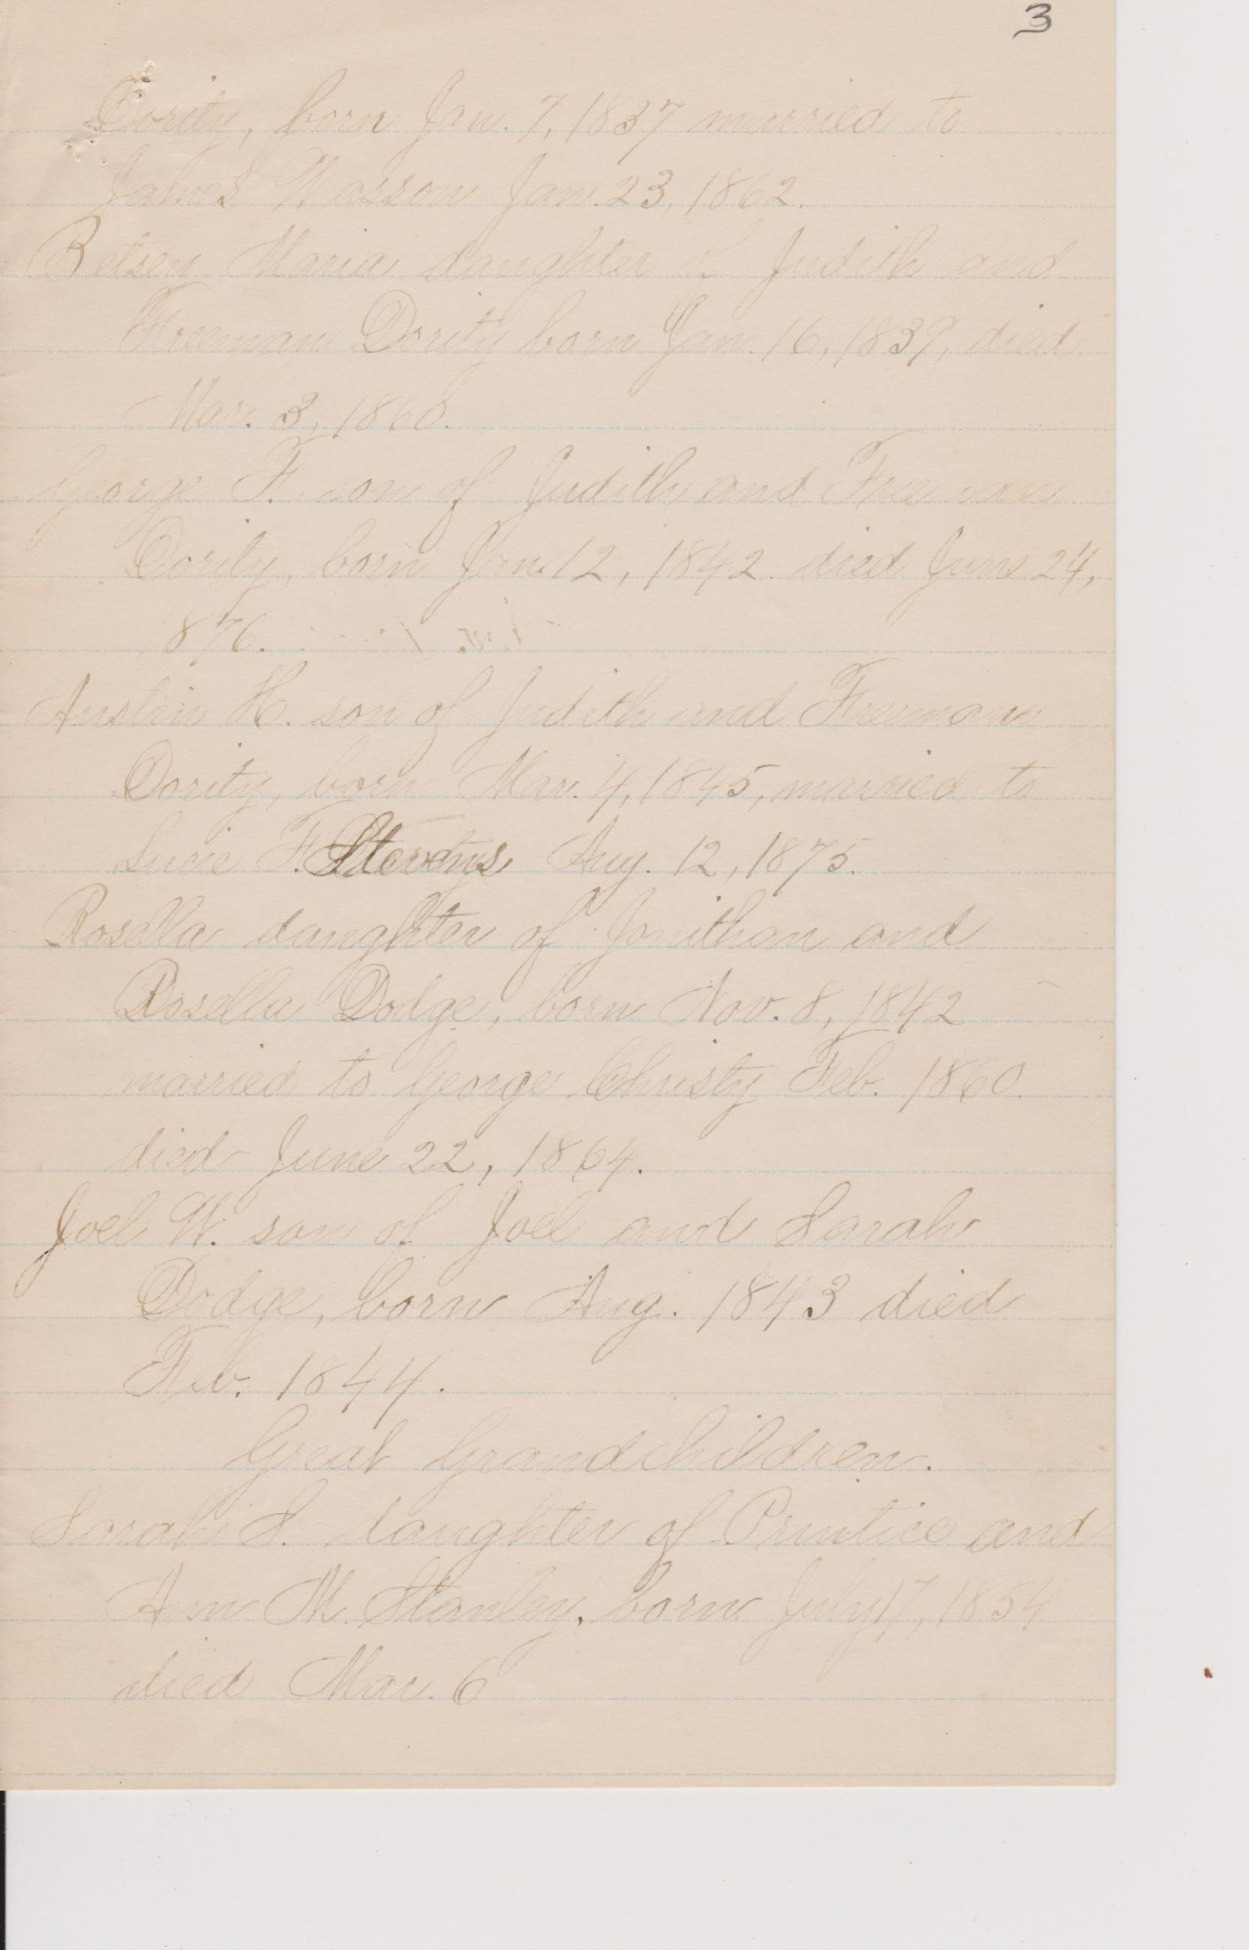 3
Dority, born Jan. 7, 1837 married to
James Wasson Jan. 23, 1862.
Betsey Maria daughter of Judith and
Freeman Dority born Jan. 16, 1839, died
Mar. 3, 1860.
George F. son of Judith and Freeman
Dority, born Jan. 12, 1842 died June 24,
1876.
Austin H. son of Judith and Freeman
Dority, born Mar. 4, 1845, married to
Lucie F. Stevens Aug. 12, 1875.
Rosella daughter of Jonithan and
Rosella Dodge, born Nov. 8, 1842
married to George Christy Feb. 1860.
died June 22, 1864.
Joel W. son of Joel and Sarah
Dodge, born Aug. 1843 died
Feb. 1844.
Great Grandchildren.
Sarah S. daughter of Printice and
Ann M. Stanley, born July 17, 1854
died Mar. 6